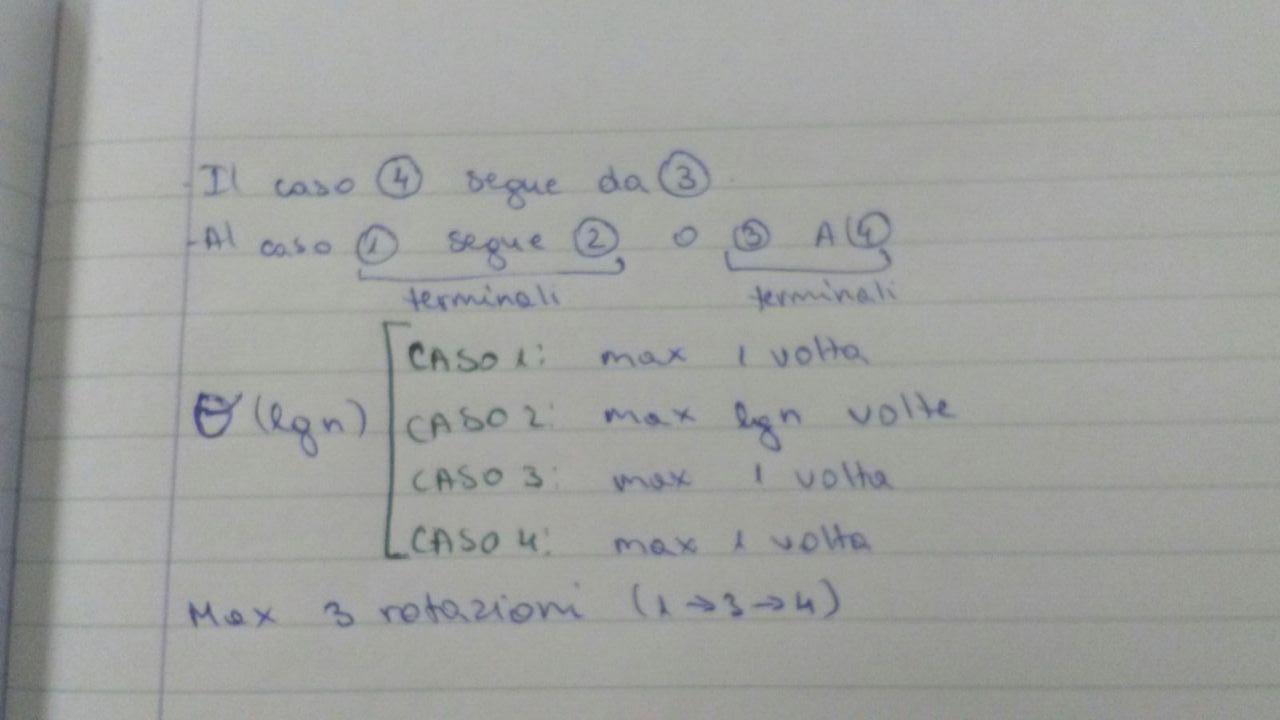 - Il caso ④ segue da ③
- Al caso ① segue ② o ③ A ④
terminali terminali
CASO 1: max 1 volta
Θ(lgn) CASO 2: max lgn volte
CASO 3: max 1 volta
CASO 4: max 1 volta
Max 3 rotazioni (1→3→4)